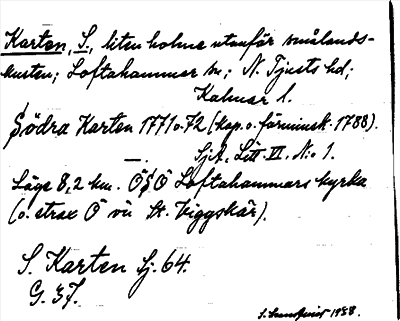 Karten, S., liten holme utanför smålands-
kusten; Loftahammar sn; N. Tjusts hd;
Kalmar l.
Södra Karten 1771 o. 72 (kop. o. förminsk. 1788).
Sjk. Litt. VI. N:o 1.
Läge 8,2 km. ÖSÖ Loftahammars kyrka
(o. strax Ö v. St. Viggskär).
S. Karten Sj. 64.
G. 37.
1958.